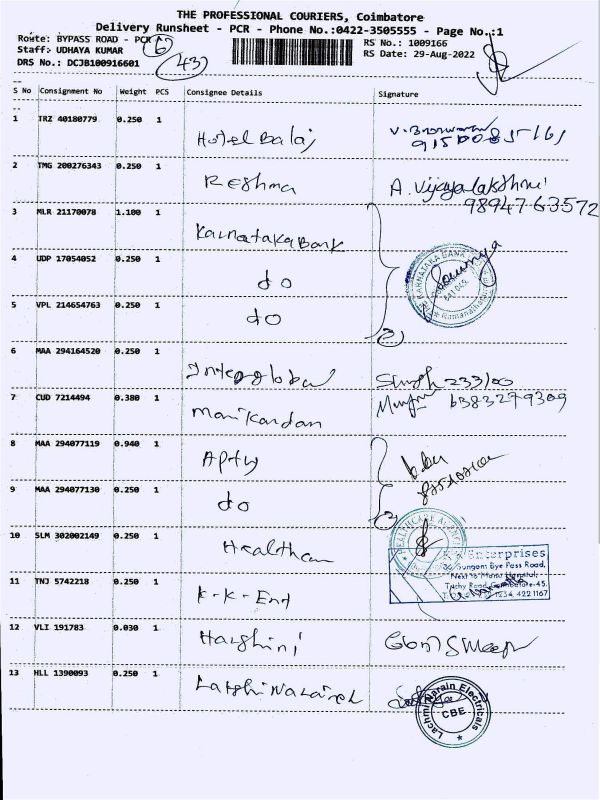 THE PROFESSIONAL COURIERS, Coimbatore
Delivery Runsheet - PCR - Phone No.:0422-3505555 - Page No.:1
Route: BYPASS ROAD - PCR 6
RS No.: 1009166
Staff: UDHAYA KUMAR
RS Date: 29-Aug-2022
DRS No.: DCJB100916601
43
S No Consignment No Weight PCS Consignee Details Signature
1 TRZ 40180779 0.250 1 Hotel Balaj
9150085161
2 TMG 200276343 0.250 1 Reshma A. Vijayalakshmi
9894763572
3 MLR 21170078 1.100 1 Karnataka Bank
4 UDP 17054052 0.250 1 do
KARNATAKA BANK
Sowmya
Ramanathapuram
5 VPL 214654763 0.250 1 do
3
6 MAA 294164520 0.250 1 Interglobal Singh 233100
7 CUD 7214494 0.380 1 Manikandan 6383279309
8 MAA 294077119 0.940 1 Apty
9 MAA 294077130 0.250 1 do
2
10 SLM 302002149 0.250 1 Healthcare
HEALTHCARE AGENCY
K.K Enterprises
36 Sungam Bye Pass Road,
Next to Manu Hospital,
Trichy Road, Coimbatore-45.
1234, 422 1167
11 TNJ 5742218 0.250 1 K-K-Ent
12 VLI 191783 0.030 1 Harshini
13 HLL 1390093 0.250 1 Lakshi Narain
Lachmi Narain Electricals
CBE